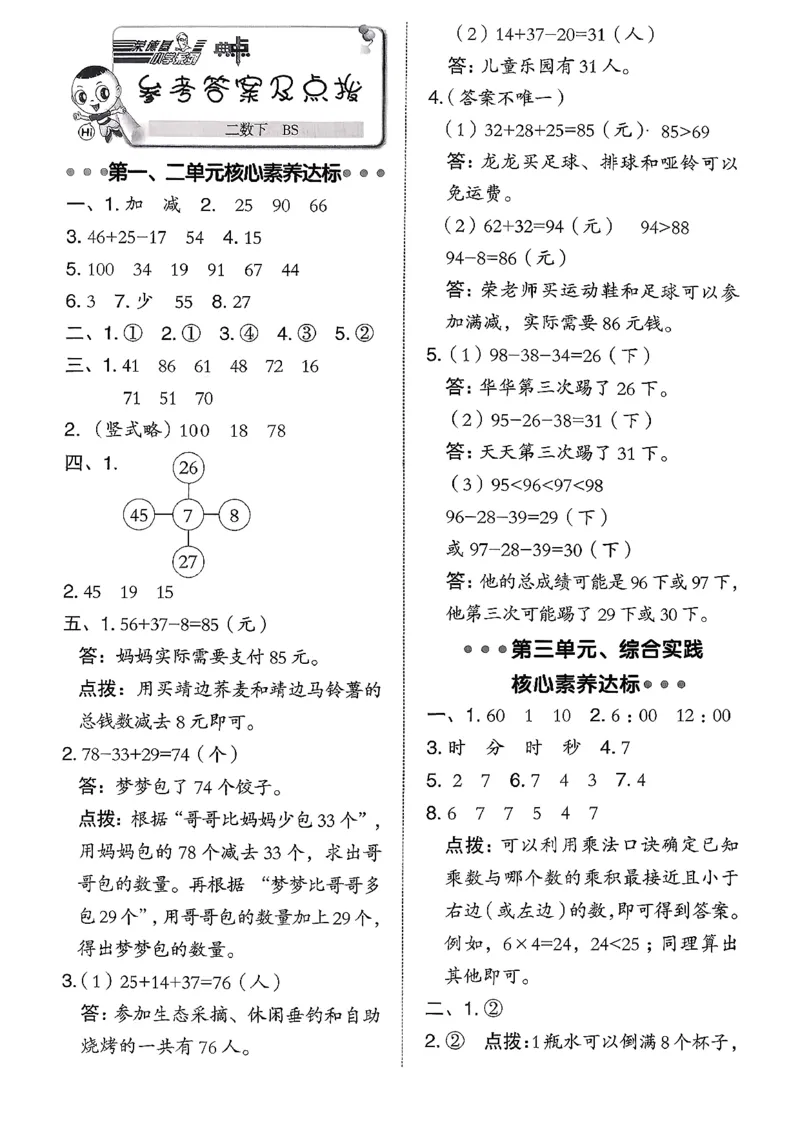 荣德基
小学系列
典中点
参考答案及点拨
Hi
二数下 BS
第一、二单元核心素养达标
一、1. 加 减 2. 25 90 66
3. 46+25−17 54 4. 15
5. 100 34 19 91 67 44
6. 3 7. 少 55 8. 27
二、1. ① 2. ① 3. ④ 4. ③ 5. ②
三、1. 41 86 61 48 72 16
71 51 70
2.（竖式略）100 18 78
四、1.
26
45 7 8
27
2. 45 19 15
五、1. 56+37−8=85（元）
答：妈妈实际需要支付 85 元。
点拨：用买靖边荞麦和靖边马铃薯的
总钱数减去 8 元即可。
2. 78−33+29=74（个）
答：梦梦包了 74 个饺子。
点拨：根据“哥哥比妈妈少包 33 个”，
用妈妈包的 78 个减去 33 个，求出哥
哥包的数量。再根据 “梦梦比哥哥多
包 29 个”，用哥哥包的数量加上 29 个，
得出梦梦包的数量。
3.（1）25+14+37=76（人）
答：参加生态采摘、休闲垂钓和自助
烧烤的一共有 76 人。
（2）14+37−20=31（人）
答：儿童乐园有 31 人。
4.（答案不唯一）
（1）32+28+25=85（元） 85>69
答：龙龙买足球、排球和哑铃可以
免运费。
（2）62+32=94（元） 94>88
94−8=86（元）
答：荣老师买运动鞋和足球可以参
加满减，实际需要 86 元钱。
5.（1）98−38−34=26（下）
答：华华第三次踢了 26 下。
（2）95−26−38=31（下）
答：天天第三次踢了 31 下。
（3）95<96<97<98
96−28−39=29（下）
或 97−28−39=30（下）
答：他的总成绩可能是 96 下或 97 下，
他第三次可能踢了 29 下或 30 下。
第三单元、综合实践
核心素养达标
一、1. 60 1 10 2. 6：00 12：00
3. 时 分 时 秒 4. 7
5. 2 7 6. 7 4 3 7. 4
8. 6 7 7 5 4 7
点拨：可以利用乘法口诀确定已知
乘数与哪个数的乘积最接近且小于
右边（或左边）的数，即可得到答案。
例如，6×4=24，24<25；同理算出
其他即可。
二、1. ②
2. ② 点拨：1瓶水可以倒满 8 个杯子，